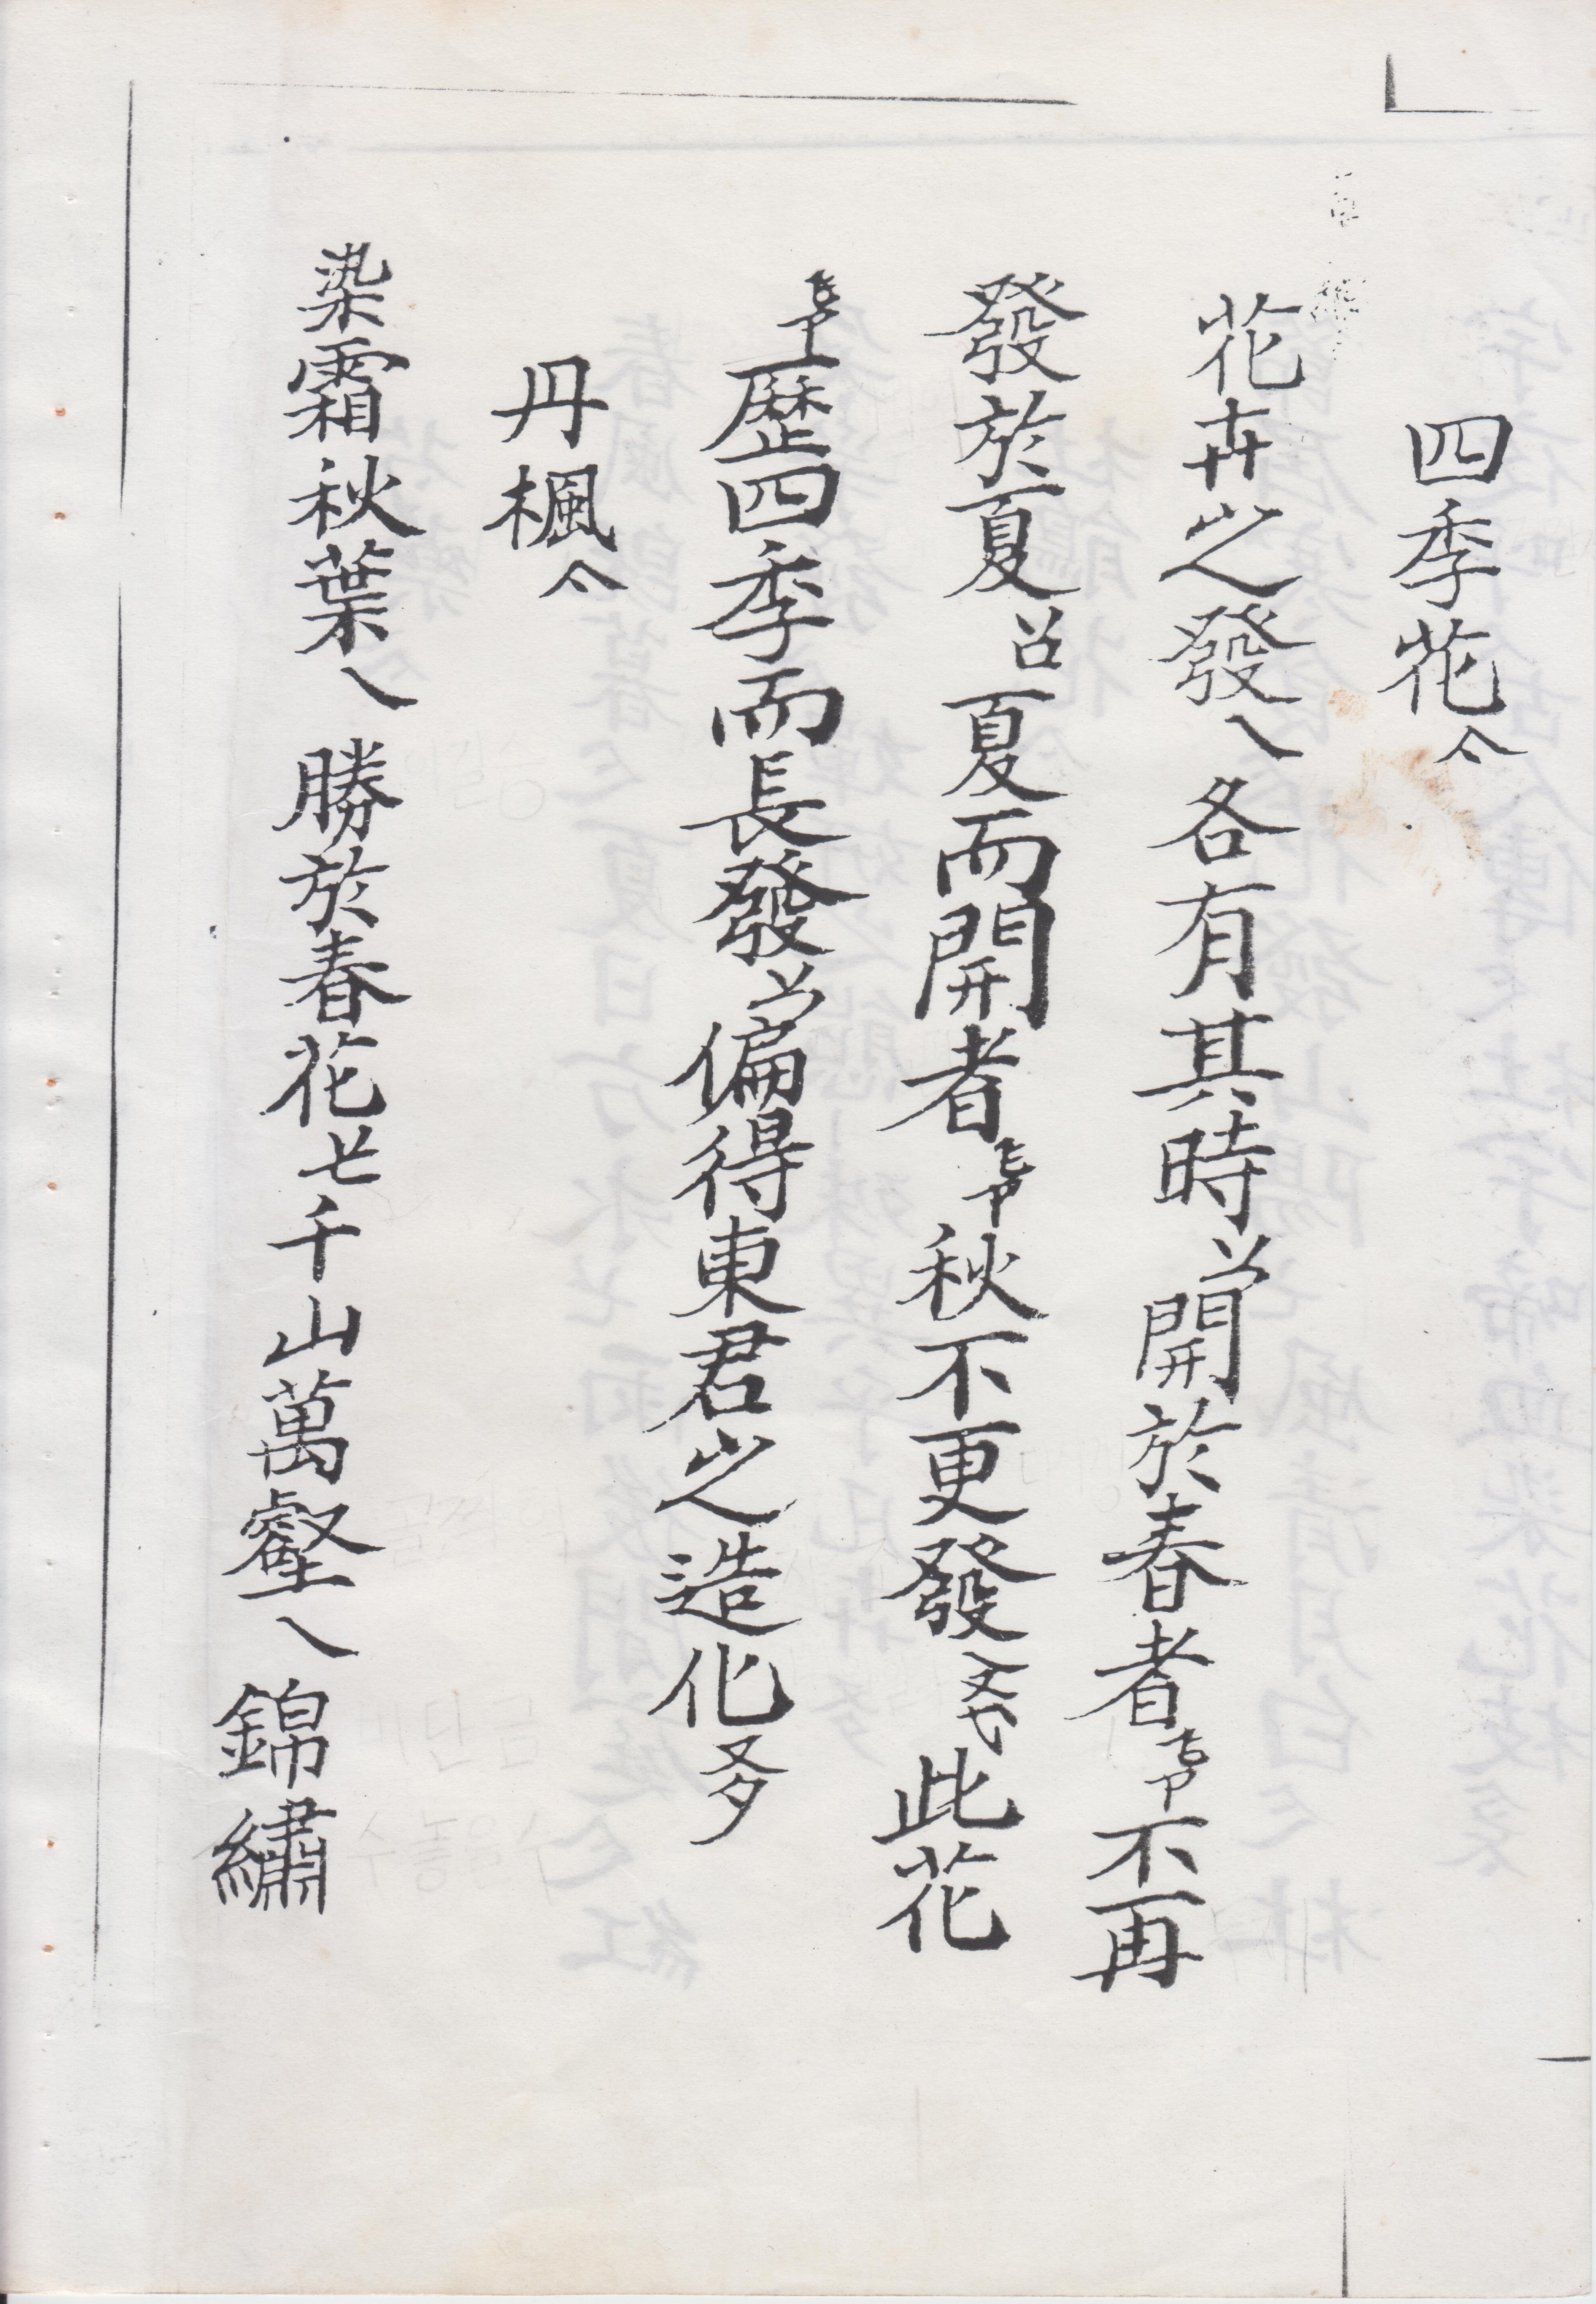 四季花亽
花卉之發乀各有其時丷開於春者不再
發於夏夏而開者秋不更發此花
歷四季而長發丷偏得東君之造化多
丹楓亽
染霜秋葉乀勝於春花千山萬壑乀錦繡